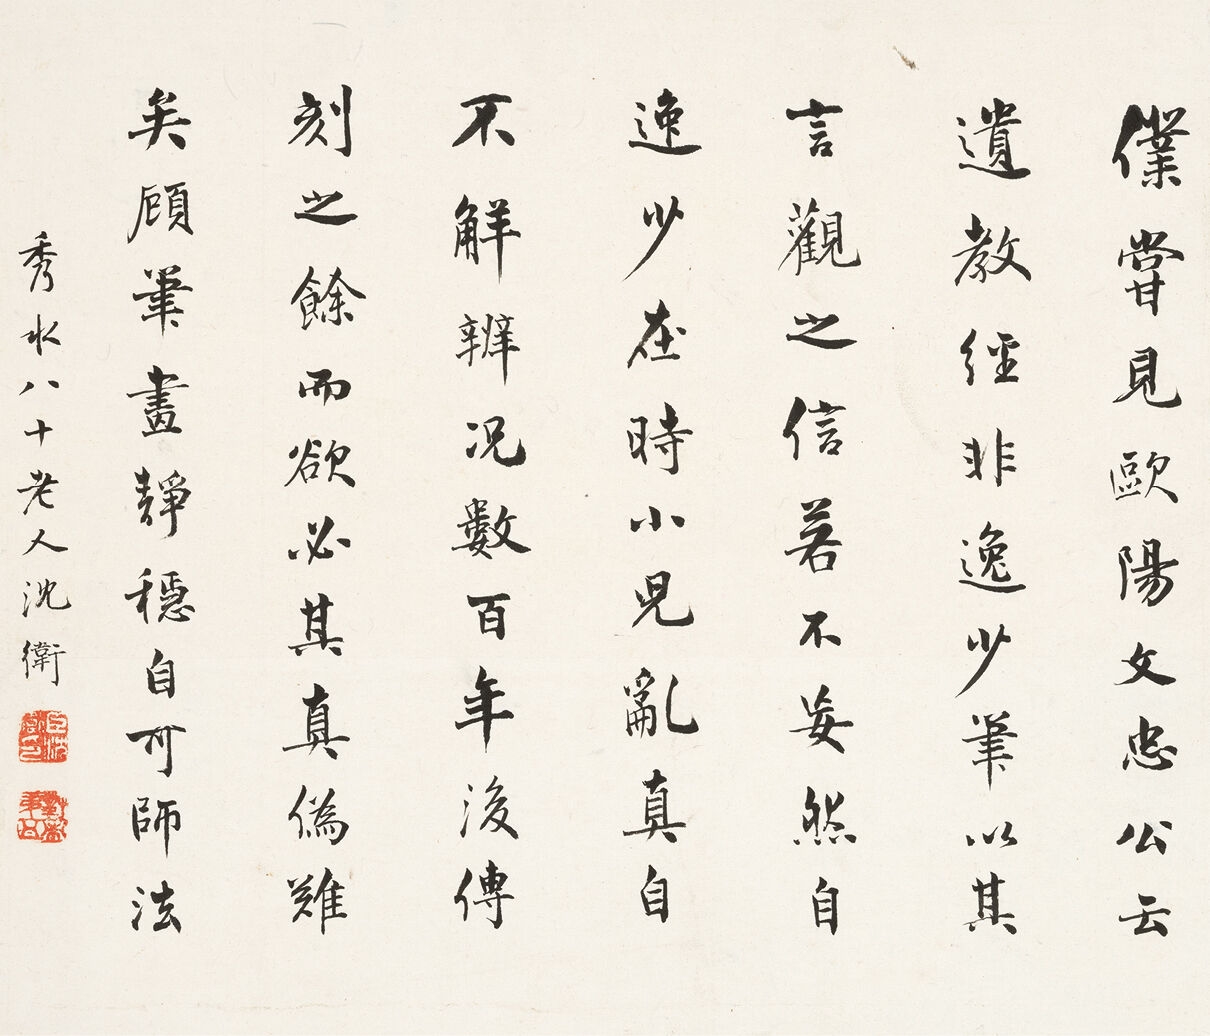 僕嘗見歐陽文忠公云
遺教經非逸少筆以其
言觀之信若不妄然自
逸少在時小兒亂真自
不解辨况數百年後傳
刻之餘而欲必其真偽難
矣顧筆畫靜穩自可師法
秀水八十老人沈衛